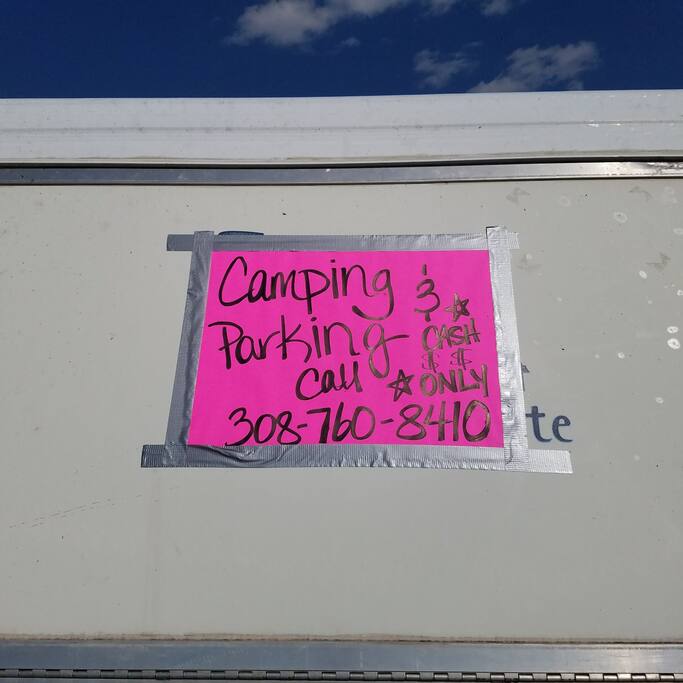 Camping &
Parking
CASH
$ $
Call
ONLY
308-760-8410
te